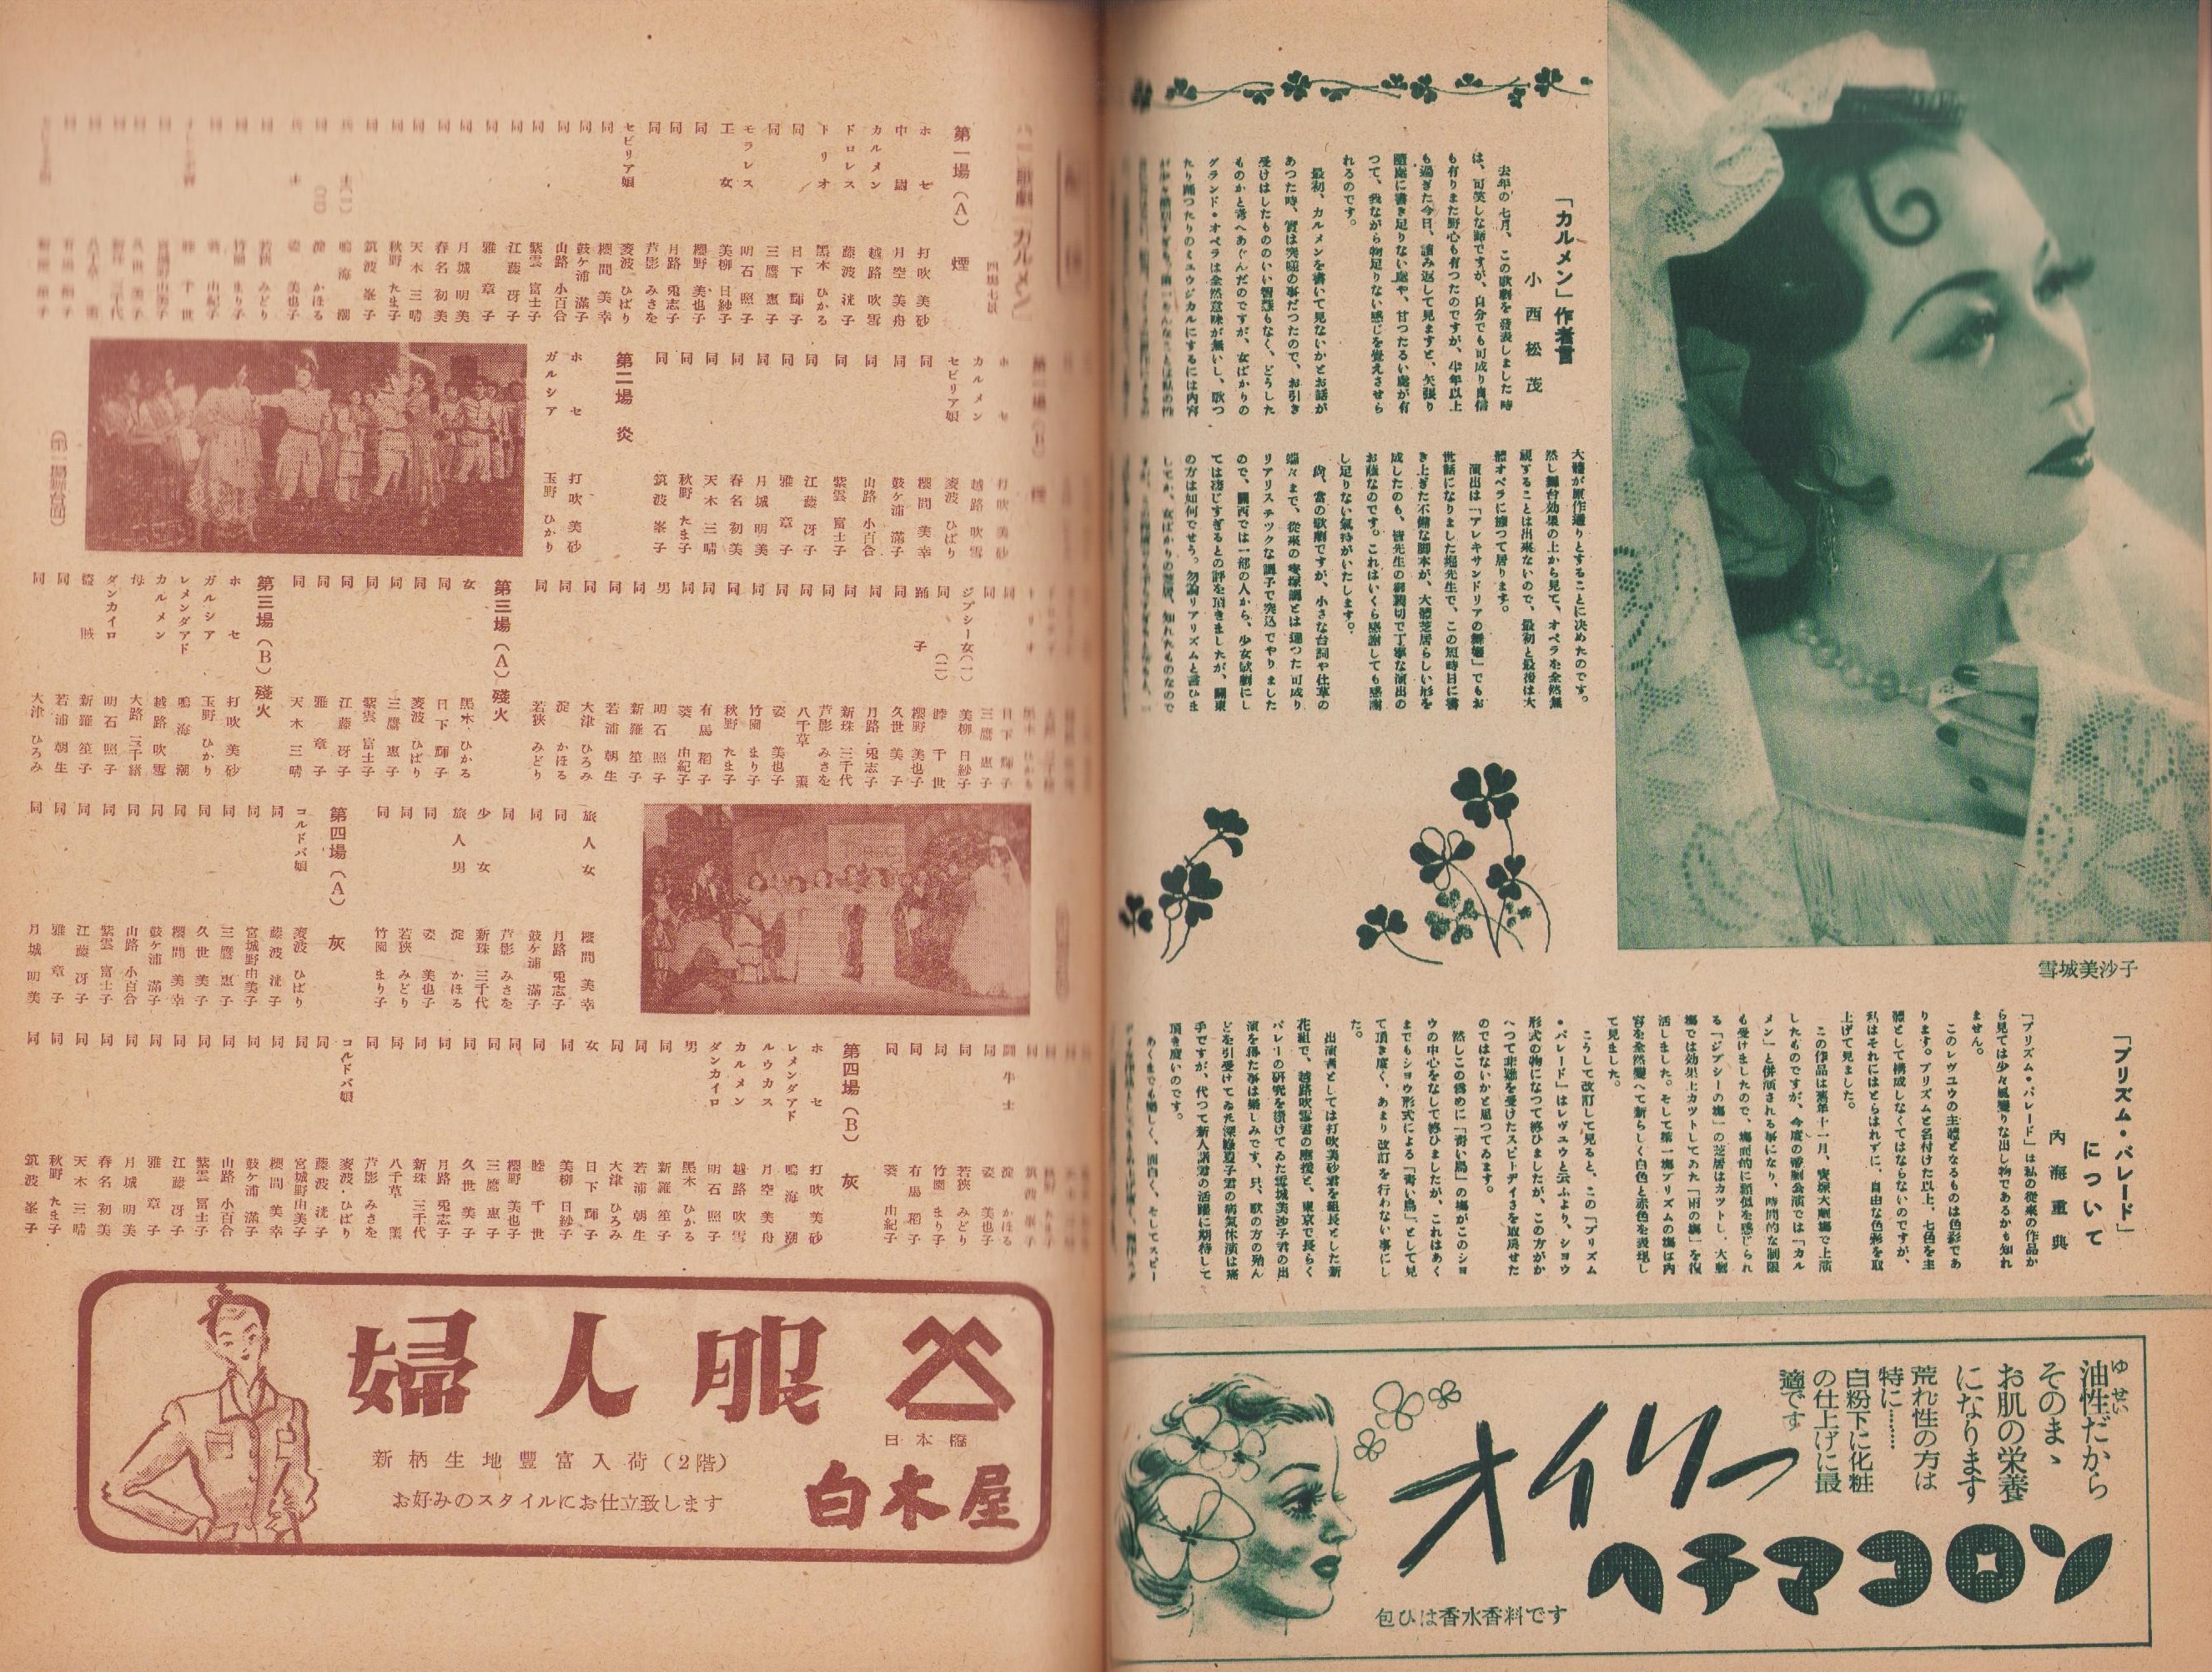 「カルメン」作者言
小西松茂
去年の七月、この歌劇を發表しました時
は、可笑しな話ですが、自分でも可成り自信
も有りまた野心も有つたのですが、半年以上
も過ぎた今日、讀み返して見ますと、矢張り
隨處に書き足りない處や、甘つたるい處が有
つて、我ながら物足りない感じを覺えさせら
れるのです。
最初、カルメンを書いて見ないかとお話が
あつた時、實は突嗟の事だつたので、お引き
受けはしたもののいい智慧もなく、どうした
ものかと考へあぐんだのですが、女ばかりの
グランド・オペラは全然意味が無いし、歌つ
たり踊つたりのミユウジカルにするには内容
大體が原作通りとすることに決めたのです。
然し舞台効果の上から見て、オペラを全然無
視することは出來ないので、最初と最後は大
體オペラに據つて居ります。
演出は「アレキサンドリアの舞姫」でもお
世話になりました堀先生で、この短時日に書
き上げた不備な脚本が、大體芝居らしい形を
成したのも、皆先生の御親切で丁寧な演出の
お蔭なのです。これはいくら感謝しても感謝
し足りない氣持がいたします。
尚、當の歌劇ですが、小さな台詞や仕草の
端々まで、從來の寶塚調とは違つた可成り
リアリステツクな調子で突込でやりました
ので、關西では一部の人から、少女歌劇にし
ては凄じすぎるとの評を頂きましたが、關東
の方は如何でせう。勿論リアリズムと言ひま
雪城美沙子
「プリズム・パレード」
について
内海重典
「プリズム・パレード」は私の從來の作品か
ら見ては少々風變りな出し物であるかも知れ
ません。
このレヴユウの主體となるものは色彩であ
ります。プリズムと名付けた以上、七色を主
體として構成しなくてはならないのですが、
私はそれにはとらはれずに、自由な色彩を取
上げて見ました。
この作品は舊年十一月、寳塚大劇場で上演
したものですが、今度の帝劇公演では「カル
メン」と併演される事になり、時間的な制限
も受けましたので、場面的に類似を感じられ
る「ジプシーの場」の芝居はカツトし、大劇
場では効果上カツトしてゐた「雨の場」を復
活しました。そして第一場プリズムの場は内
容を全然變へて新らしく白色と赤色を表現し
て見ました。
こうして改訂して見ると、この「プリズム
・パレード」はレヴユウと云ふより、シヨウ
形式の物になつて終ひましたが、この方がか
へつて非難を受けたスピードデイさを取戻せた
のではないかと思つてゐます。
然しこの爲めに「青い鳥」の場がこのシヨ
ウの中心をなして終ひましたが、これはあく
までもシヨウ形式による「青い鳥」として見
て頂き度く、あまり改訂を行わない事にし
た。
出演者としては打吹美砂君を組長とした新
花組で、越路吹雪君の應援と、東京で長らく
バレーの研究を續けてゐた雪城美沙子君の出
演を得た事は樂しみです。只、歌の方の殆ん
どを引受けてゐた深緑夏子君の病氣休演は痛
手ですが、代つて新人諸君の活躍に期待して
頂き度いのです。
あくまでも樂しく、面白く、そしてスピー
油性だから
ゆせい
そのまゝ
お肌の栄養
になります
荒れ性の方は
特に……
白粉下に化粧
の仕上げに最
適です
オイリー
ヘチマコロン
包ひは香水香料です
歌劇「カルメン」
四場七景
第一場（A）煙
ホセ 打吹美砂
中尉 月空美舟
カルメン 越路吹雪
ドロレス 藤波洸子
トリオ 黑木ひかる
同 日下輝子
同 三鷹惠子
モラレス 明石照子
工女 美柳日紗子
同 櫻野美也子
同 月路兎志子
同 芦影みさを
セビリア娘 淩波ひばり
同 櫻間美幸
同 鼓ケ浦滿子
同 山路小百合
同 紫雲富士子
同 江藤冴子
同 雅章子
同 月城明美
同 春名初美
同 天木三晴
同 秋野たま子
同 筑波峯子
ホセ 打吹美砂
カルメン 越路吹雪
セビリア娘 淩波ひばり
同 櫻間美幸
同 鼓ケ浦滿子
同 山路小百合
同 紫雲富士子
同 江藤冴子
同 雅章子
同 月城明美
同 春名初美
同 天木三晴
同 秋野たま子
同 筑波峯子
第二場 炎
ホセ 打吹美砂
ガルシア 玉野ひかり
（第一場舞台面）
同 日下輝子
同 三鷹惠子
ジプシー女（一） 美柳日紗子
同（二） 睦千世
踊子 櫻野美也子
同 久世美子
同 月路兎志子
同 新珠三千代
同 芦影みさを
同 八千草薫
同 姿美也子
同 竹園まり子
同 秋野たま子
同 有馬稻子
同 葵由紀子
男 明石照子
同 新羅笙子
同 若浦朝生
同 大津ひろみ
同 淀かほる
同 若狹みどり
第三場（A）殘火
女 黑木ひかる
同 日下輝子
同 淩波ひばり
同 三鷹惠子
同 紫雲富士子
同 江藤冴子
同 雅章子
同 天木三晴
第三場（B）殘火
ホセ 打吹美砂
ガルシア 玉野ひかり
レメンダアド 鳴海潮
カルメン 越路吹雪
母 大路三千緒
ダンカイロ 明石照子
盜賊 新羅笙子
同 若浦朝生
同 大津ひろみ
旅人女 櫻間美幸
同 月路兎志子
同 鼓ケ浦滿子
同 芦影みさを
少女 新珠三千代
旅人男 淀かほる
同 姿美也子
同 若狹みどり
同 竹園まり子
第四場（A） 灰
コルドバ娘 淩波ひばり
同 藤波洸子
同 宮城野由美子
同 三鷹惠子
同 久世美子
同 櫻間美幸
同 鼓ケ浦滿子
同 山路小百合
同 紫雲富士子
同 江藤冴子
同 雅章子
同 月城明美
鬪牛士 淀かほる
同 姿美也子
同 若狹みどり
同 竹園まり子
同 有馬稻子
同 葵由紀子
第四場（B） 灰
ホセ 打吹美砂
レメンダアド 鳴海潮
ルウカス 月空美舟
カルメン 越路吹雪
ダンカイロ 明石照子
男 黑木ひかる
同 新羅笙子
同 若浦朝生
同 大津ひろみ
女 日下輝子
同 美柳日紗子
同 睦千世
同 櫻野美也子
同 三鷹惠子
同 久世美子
同 月路兎志子
同 新珠三千代
同 八千草薫
同 芦影みさを
コルドバ娘 淩波・ひばり
同 藤波洸子
同 宮城野由美子
同 櫻間美幸
同 鼓ケ浦滿子
同 山路小百合
同 紫雲富士子
同 江藤冴子
同 雅章子
同 月城明美
同 春名初美
同 天木三晴
同 秋野たま子
同 筑波峯子
婦人服
日本橋
白木屋
新柄生地豐富入荷（2階）
お好みのスタイルにお仕立致します